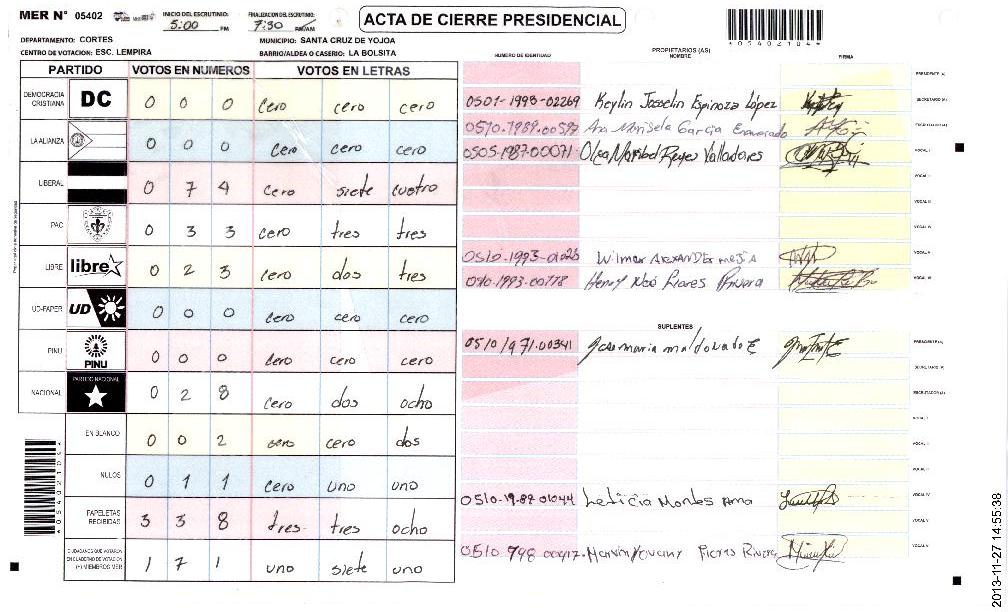 MER N° 05402
INICIO DEL ESCRUTINIO: 5:00 PM
FINALIZACION DEL ESCRUTINIO: 7:30 PM/AM
ACTA DE CIERRE PRESIDENCIAL
DEPARTAMENTO: CORTES
MUNICIPIO: SANTA CRUZ DE YOJOA
CENTRO DE VOTACION: ESC. LEMPIRA
BARRIO/ALDEA O CASERIO: LA BOLSITA
*05402104*
PARTIDO VOTOS EN NUMEROS VOTOS EN LETRAS
NUMERO DE IDENTIDAD PROPIETARIOS (AS) NOMBRE FIRMA
PRESIDENTE (A)
DEMOCRACIA CRISTIANA DC 0 0 0 cero cero cero
0501-1993-02269 Keylin Josselin Espinoza López SECRETARIO (A)
Ana Marisela Garcia ESCRUTADOR (A)
LA ALIANZA 0 0 0 cero cero cero
0505-1987-00071 Olga Maribel Reyes Valladares VOCAL I
LIBERAL 0 7 4 cero siete cuatro
VOCAL II
VOCAL III
PAC 0 3 3 cero tres tres
VOCAL IV
LIBRE libre 0 2 3 cero dos tres
Wilmer ALEXANDER mejiA VOCAL V
Henry Noé Flores Rivera VOCAL VI
UD-FAPER UD 0 0 0 cero cero cero
SUPLENTES
PINU PINU 0 0 0 cero cero cero
0510 1971.00341 Jose maria maldonado E PRESIDENTE (A)
SECRETARIO (A)
NACIONAL PARTIDO NACIONAL 0 2 8 cero dos ocho
ESCRUTADOR (A)
VOCAL I
EN BLANCO 0 0 2 cero cero dos
VOCAL II
VOCAL III
NULOS 0 1 1 cero uno uno
Leticia Montes Ama VOCAL IV
PAPELETAS RECIBIDAS 3 3 8 tres tres ocho
VOCAL V
CIUDADANOS QUE VOTARON EN CUADERNO DE VOTACION (+) MIEMBROS MER 1 7 1 uno siete uno
Flores Rivera VOCAL VI
*05402104*
2013-11-27 14:55:38